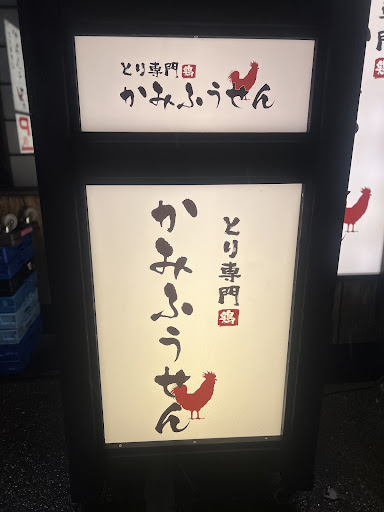 とり専門 鶏
かみふうせん
とり専門 鶏
かみふうせん